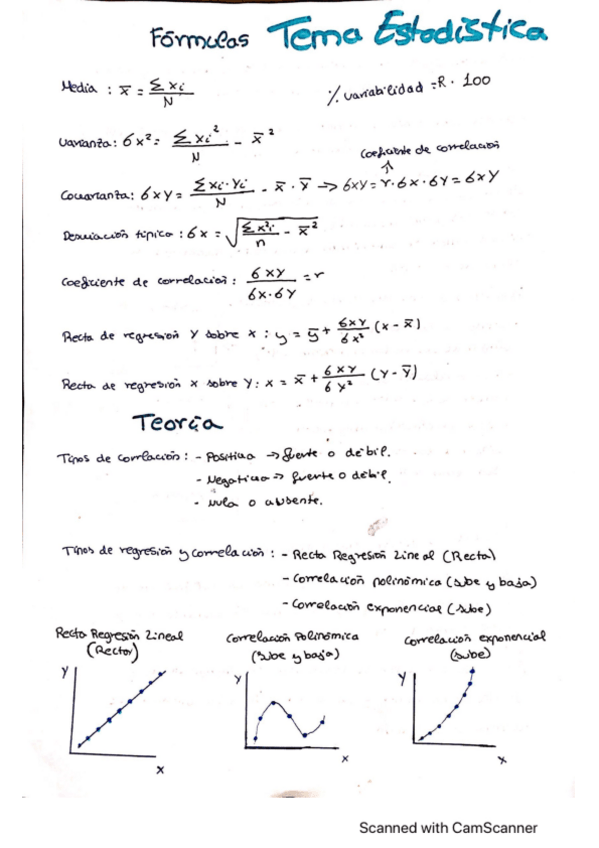 Fórmulas Tema Estadística
Media : x̄ = Σxi / N
% variabilidad = R · 100
Varianza: 6x² = Σxi² / N - x̄²
Coeficiente de correlación
Covarianza: 6xy = Σxi·Yi / N - x̄ · ȳ → 6xY = r·6x·6Y = 6xY
Desviación típica : 6x = √(Σx²i / n - x̄²)
Coeficiente de correlación : 6xy / 6x·6Y = r
Recta de regresión Y sobre x : y = ȳ + 6xy / 6x² (x - x̄)
Recta de regresión x sobre Y: x = x̄ + 6xy / 6y² (Y - ȳ)
Teoría
Tipos de correlación : - Positiva → fuerte o débil.
- Negativa → fuerte o débil.
- Nula o ausente.
Tipos de regresión y correlación : - Recta Regresión Lineal (Recta)
- Correlación polinómica (sube y baja)
- Correlación exponencial (sube)
Recta Regresión Lineal
(Recta)
Correlación Polinómica
(sube y baja)
Correlación exponencial
(sube)
Y
x
Y
x
Y
x
Scanned with CamScanner